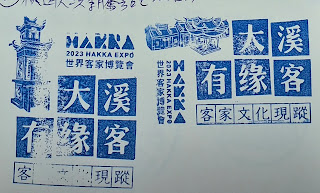 HAKKA
2023 HAKKA EXPO
世界客家博覽會
大溪
有缘客
客 現蹤
HAKKA
2023 HAKKA EXPO
世界客家博覽會
大溪
有缘客
客家文化現蹤